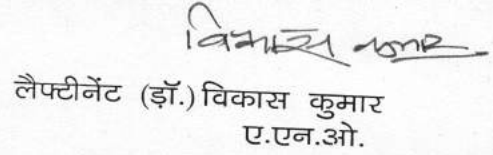 विकास कुमार
लैफ्टीनेंट (ड़ॉ.) विकास कुमार
ए.एन.ओ.